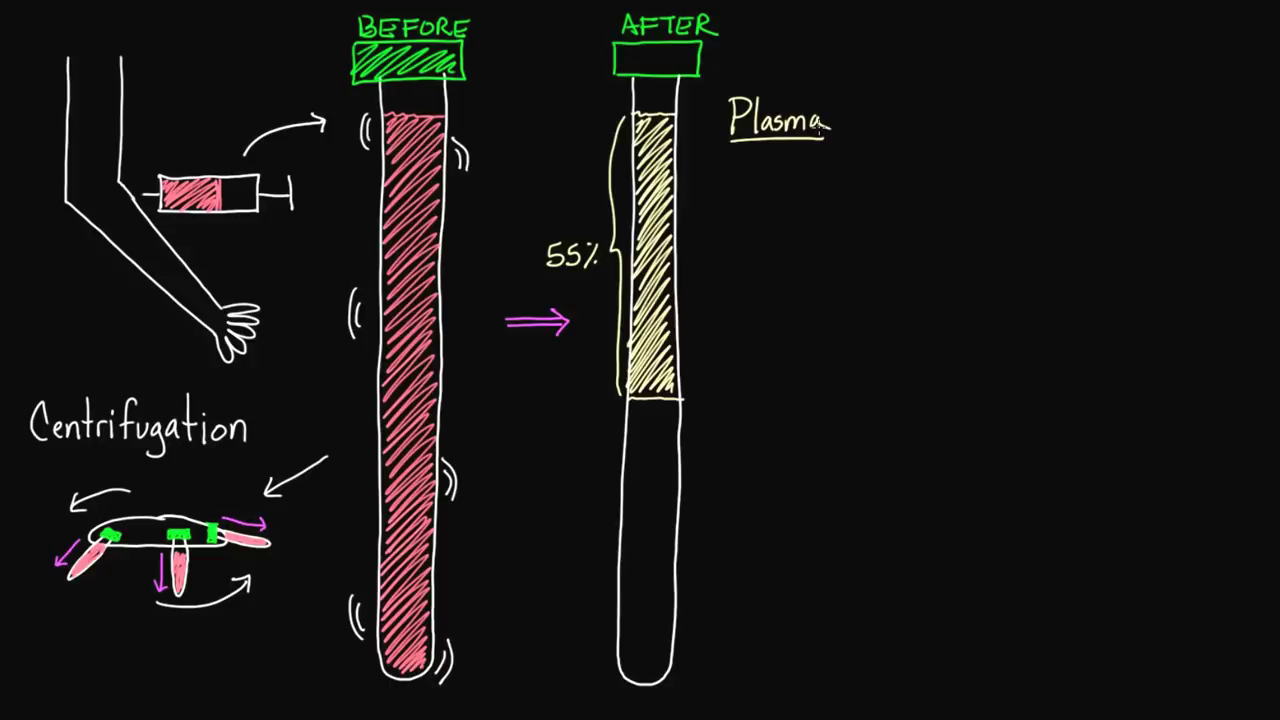 BEFORE
AFTER
Plasma
55%
Centrifugation